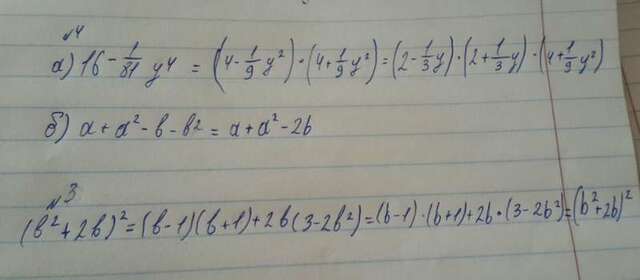 №4
а) 16 - 1/81 y⁴ = (4 - 1/9 y²) · (4 + 1/9 y²) = (2 - 1/3 y) · (2 + 1/3 y) · (4 + 1/9 y²)
б) a + a² - b - b² = a + a² - 2b
№3
(b² + 2b)² = (b - 1)(b + 1) + 2b(3 - 2b²) = (b - 1) · (b + 1) + 2b · (3 - 2b²) = (b² + 2b)²